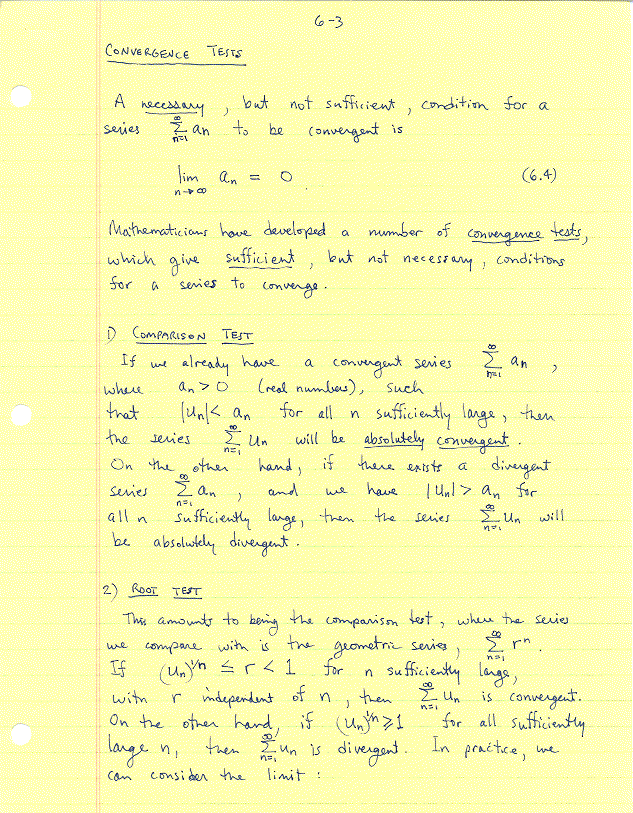 6-3
CONVERGENCE TESTS
A necessary, but not sufficient, condition for a
series ∑_{n=1}^{∞} a_n to be convergent is
lim_{n→∞} a_n = 0 (6.4)
Mathematicians have developed a number of convergence tests,
which give sufficient, but not necessary, conditions
for a series to converge.
1) COMPARISON TEST
If we already have a convergent series ∑_{n=1}^{∞} a_n,
where a_n > 0 (real numbers), such
that |u_n| < a_n for all n sufficiently large, then
the series ∑_{n=1}^{∞} u_n will be absolutely convergent.
On the other hand, if there exists a divergent
series ∑_{n=1}^{∞} a_n, and we have |u_n| > a_n for
all n sufficiently large, then the series ∑_{n=1}^{∞} u_n will
be absolutely divergent.
2) ROOT TEST
This amounts to being the comparison test, where the series
we compare with is the geometric series, ∑_{n=1}^{∞} r^n.
If (u_n)^{1/n} ≤ r < 1 for n sufficiently large,
with r independent of n, then ∑_{n=1}^{∞} u_n is convergent.
On the other hand, if (u_n)^{1/n} ≥ 1 for all sufficiently
large n, then ∑_{n=1}^{∞} u_n is divergent. In practice, we
can consider the limit: